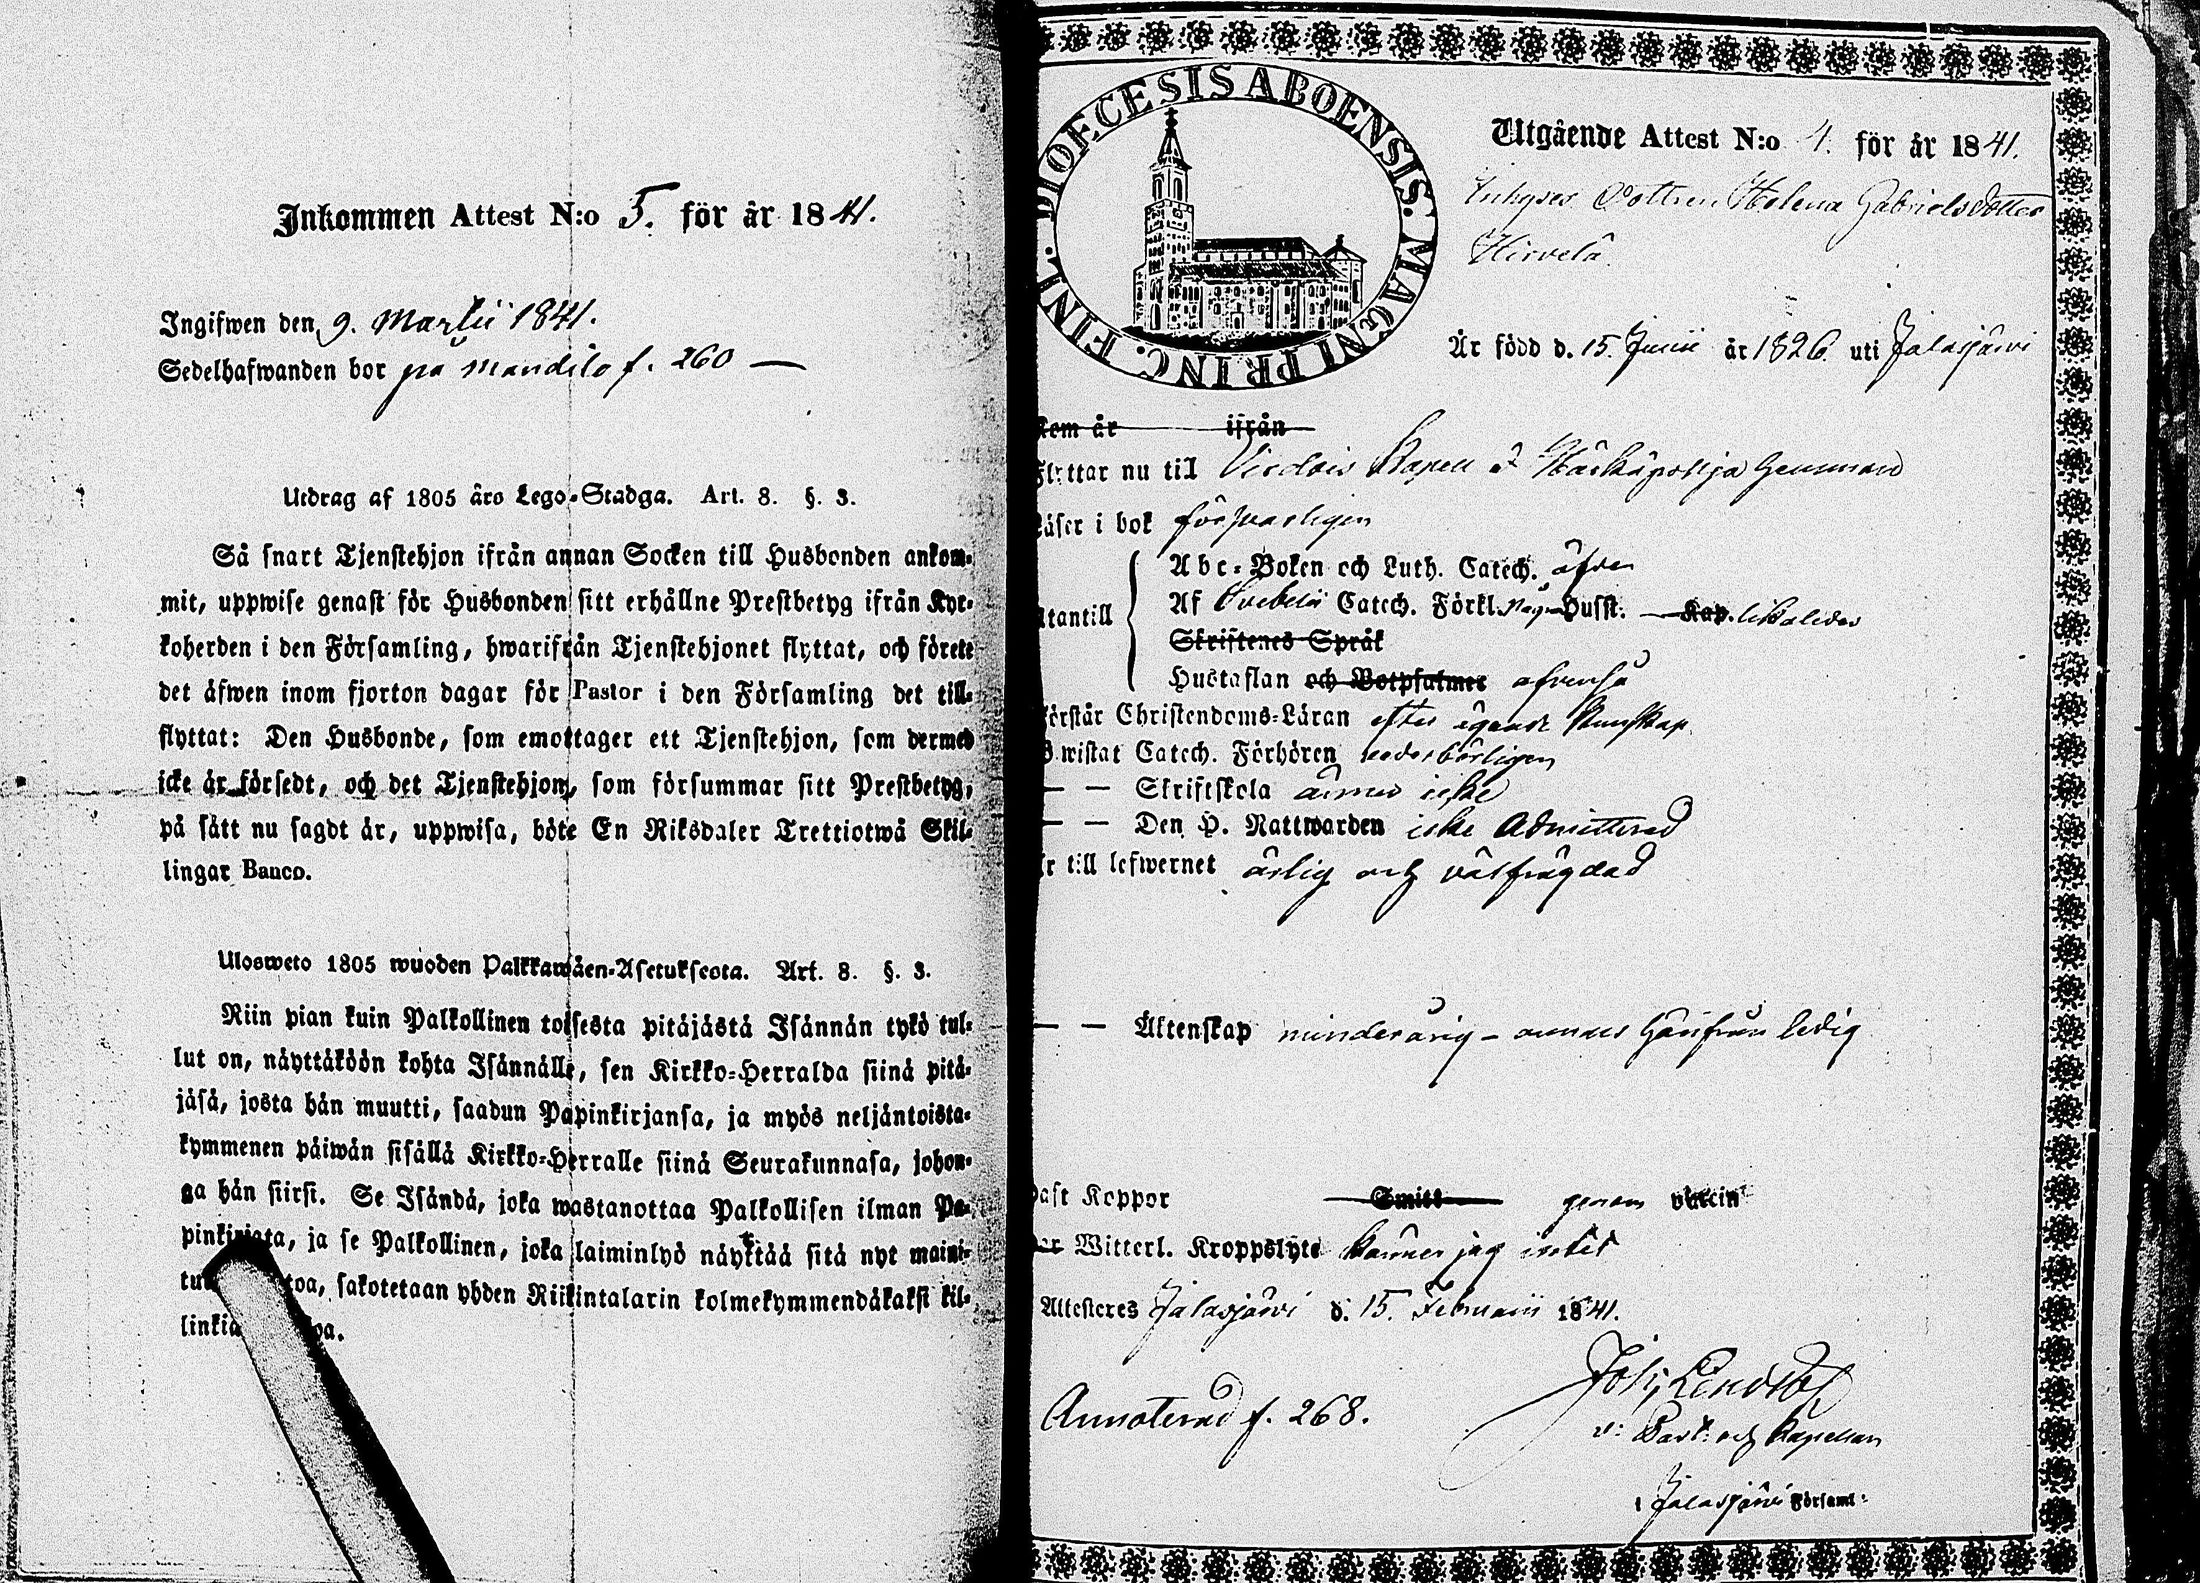 Inkommen Attest N:o 5. för år 1841.
Ingifwen den 9. Martii 1841.
Sedelhafwanden bor på Mandila f. 260 —
Utdrag af 1805 års Lego-Stadga. Art. 8. §. 3.
Så snart Tjenstehjon ifrån annan Socken till Husbonden ankom-
mit, uppwise genast för Husbonden sitt erhållne Prestbetyg ifrån Kyr-
koherden i den Församling, hwarifrån Tjenstehjonet flyttat, och förete
det äfwen inom fjorton dagar för Pastor i den Församling det till-
flyttat: Den Husbonde, som emottager ett Tjenstehjon, som dermed
icke är försedt, och det Tjenstehjon, som försummar sitt Prestbetyg,
på sätt nu sagdt är, uppwisa, böte En Riksdaler Trettiotwå Skil-
lingar Banco.
Ulosweto 1805 wuoden Palkkawäen-Asetuksesta. Art. 8. §. 3.
Niin pian kuin Palkollinen toisesta pitäjästä Isännän tykö tul-
lut on, näyttäköön kohta Isännälle, sen Kirkko-Herralda siinä pitä-
jäsä, josta hän muutti, saadun Papinkirjansa, ja myös neljäntoista-
kymmenen päiwän sisällä Kirkko-Herralle siinä Seurakunnasa, johon-
ga hän siirsi. Se Isändä, joka wastanottaa Palkollisen ilman Pa-
pinkirjata, ja se Palkollinen, joka laiminlyö näyttää sitä nyt maini-
tu toa, sakotetaan yhden Riikintalarin kolmekymmendäkaksi kil-
linkiä
DIOECESIS ABOENSIS. MAGNI PRINC. FINL.
Utgående Attest N:o 1. för år 1841.
Inhyses Dottren Helena Gabrielsdotter
Hirvelä
Är född d. 15. Junii år 1826. uti Jalasjärvi
Kom år ifrån
Flyttar nu till Virdois Kapell
Läser i bok försvarligen
Utantill
Abc-Boken och Luth. Catech. äfven
Af Svebelii Catech. Förkl. någr Husst. Kap. likaledes
Skriftenes Språk
Hustaflan och Botpsalmer äfvenså
Förstår Christendoms-Läran efter ägande kunskap
Bewistat Catech. Förhören vederbörligen
— — Skriftskola ännu icke
— — Den H. Nattwarden icke Admitterad
Är till lefwernet ärlig och välfrägdad
— — Äktenskap minderårig - annars härifrån ledig
Haft Koppor Smitt genom vaccin
Witterl. Kroppslyte känner jag intet
Attesteres Jalasjärvi d. 15. Februarii 1841.
Annoterad f. 268.
v: Past: och Kapellan
i Jalasjärvi Församl: